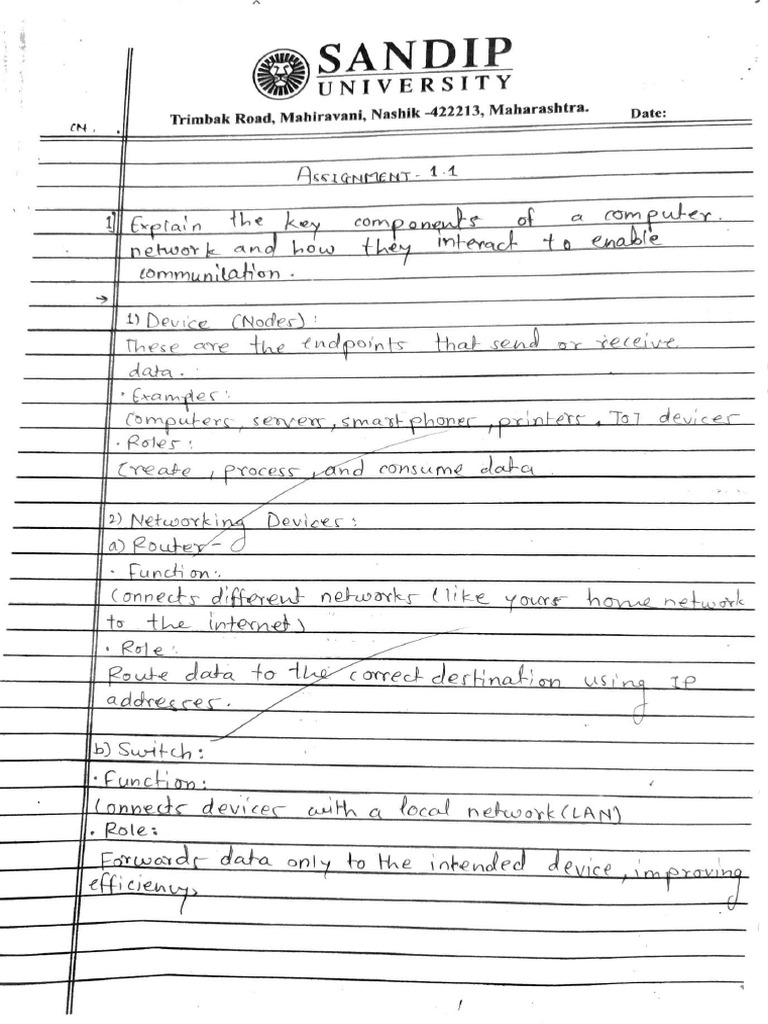 SANDIP
UNIVERSITY
Trimbak Road, Mahiravani, Nashik -422213, Maharashtra. Date:
CN.
ASSIGNMENT - 1.1
1] Explain the key components of a computer.
network and how they interact to enable
communication.
→
1) Device (Nodes):
These are the endpoints that send or receive
data.
• Examples:
Computers, servers, smartphones, printers, IoT devices
• Roles:
Create, process, and consume data
2) Networking Devices:
a) Router-
• Function:
Connects different networks (like yours home network
to the internet)
• Role:
Route data to the correct destination using IP
addresses.
b) Switch:
• Function:
Connects devices with a local network (LAN)
• Role:
Forwards data only to the intended device, improving
efficiency,